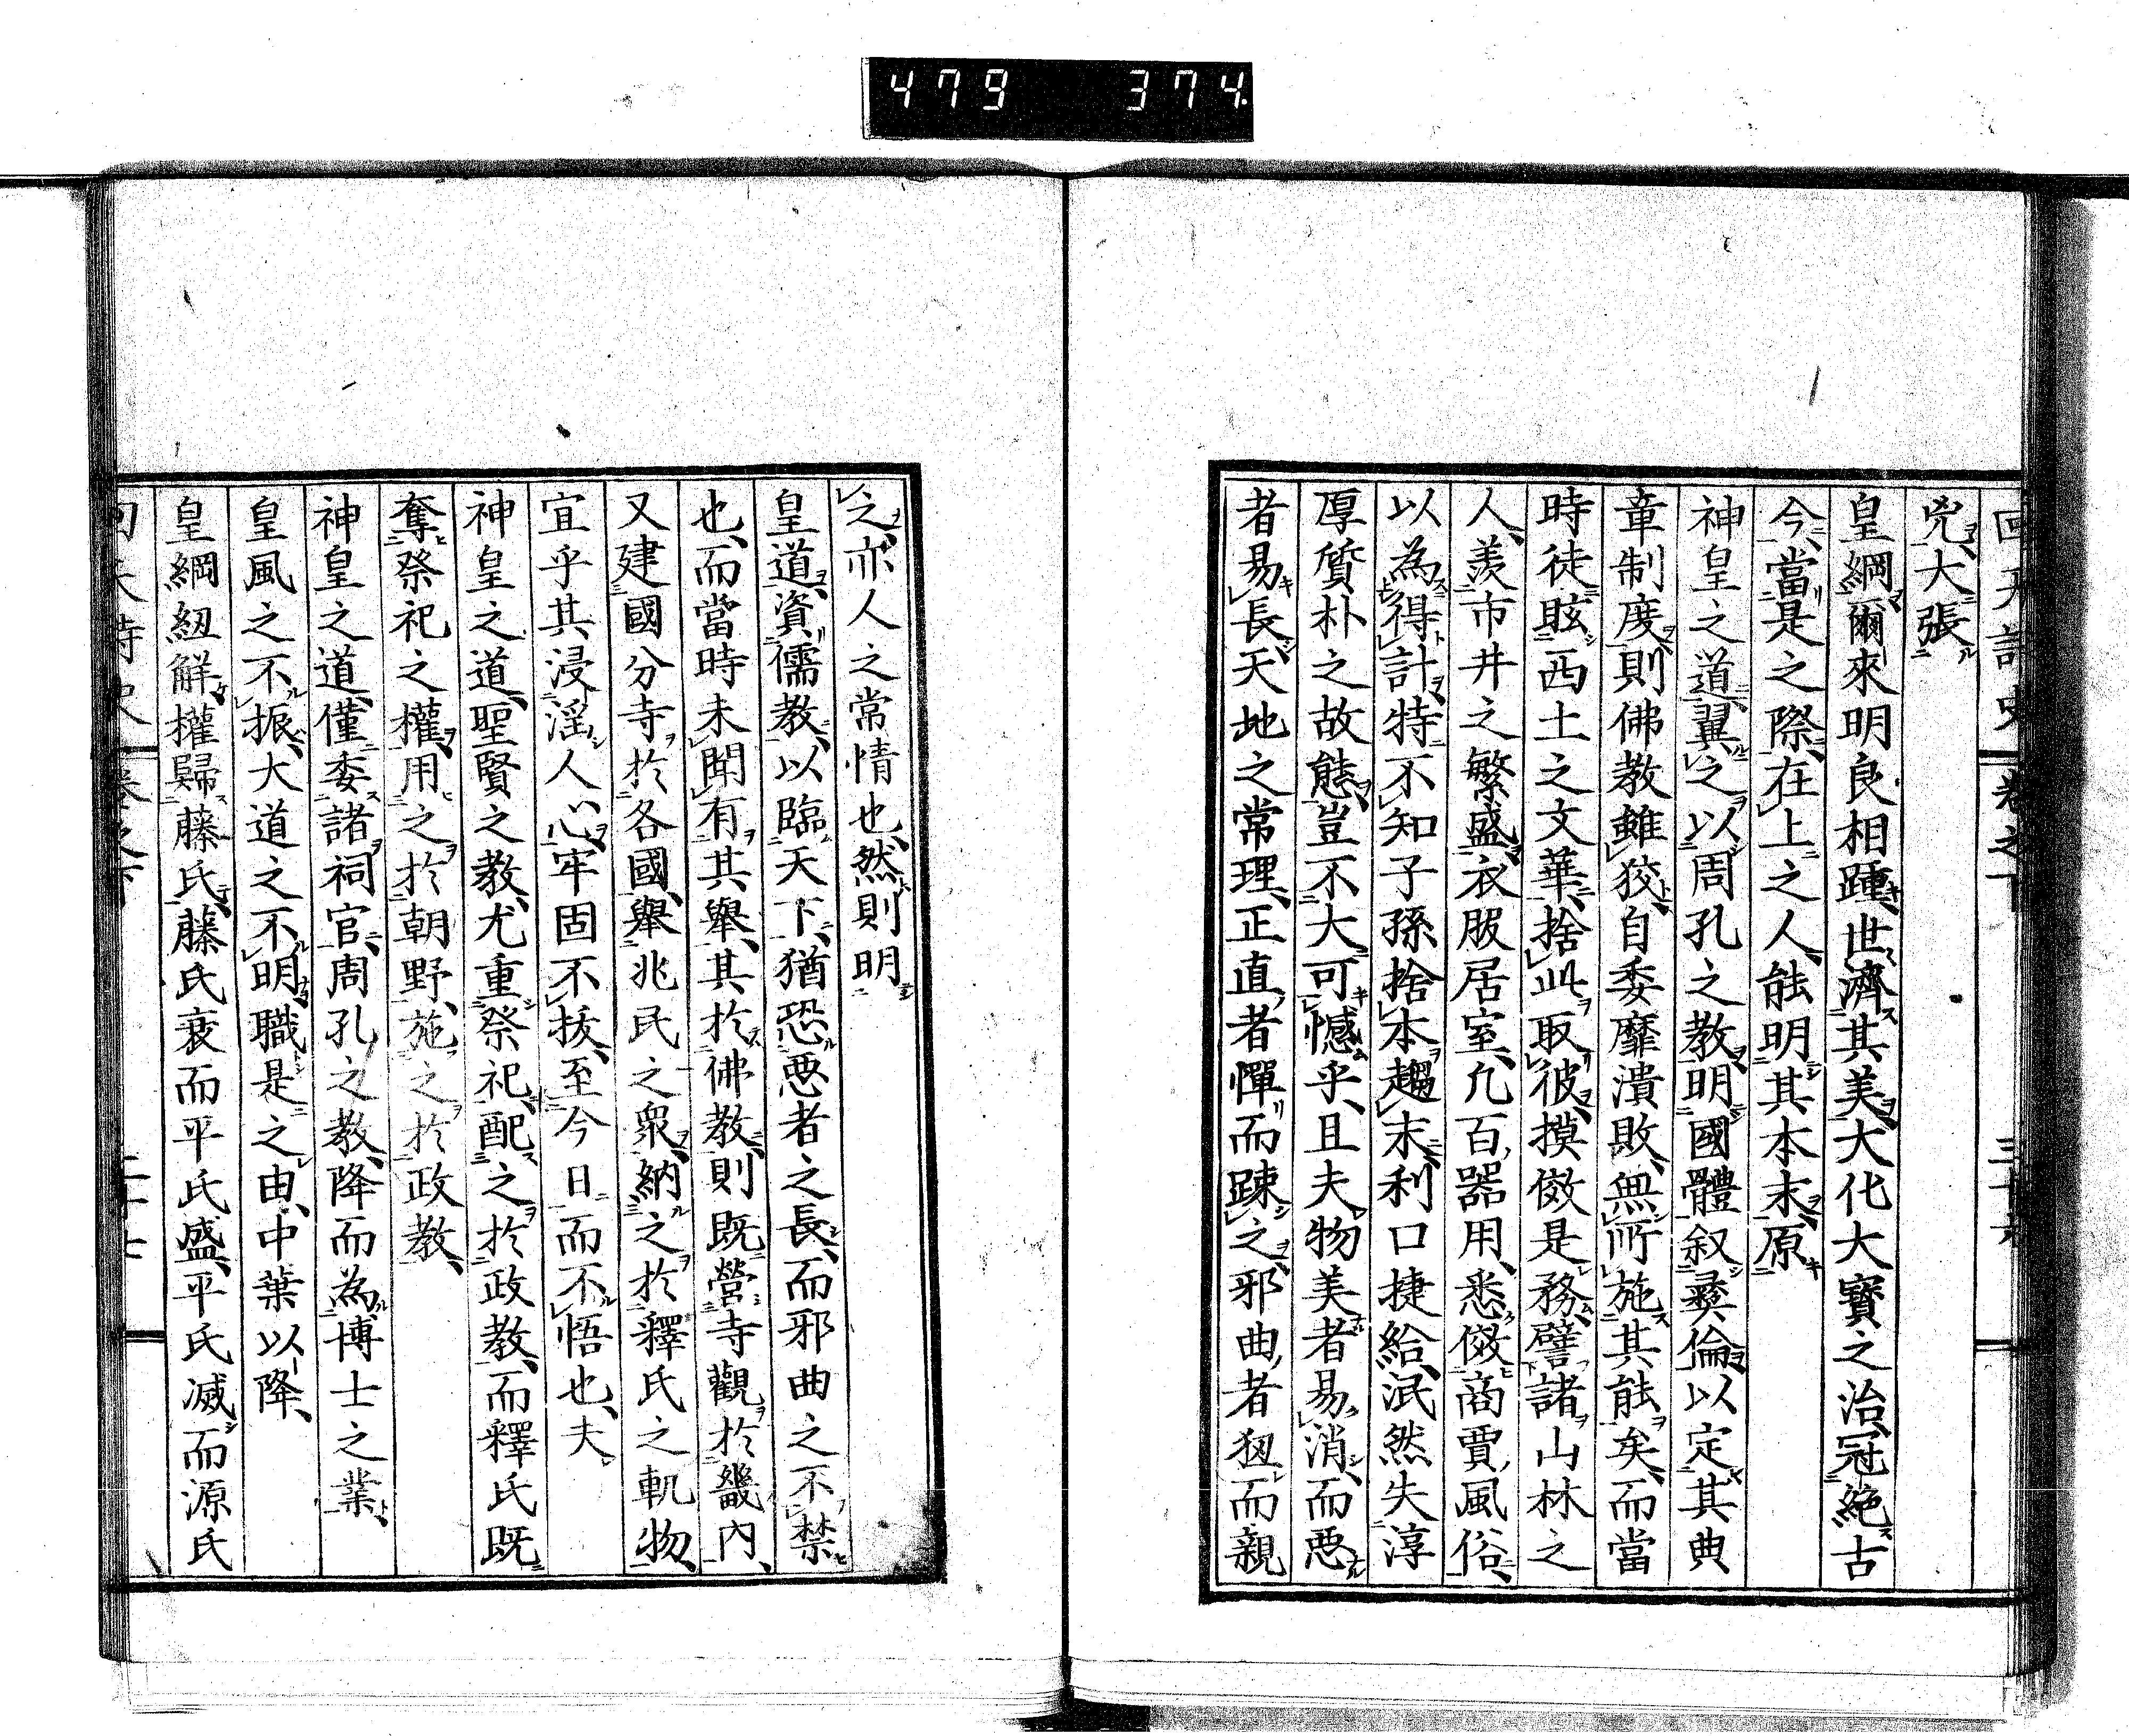 479 374
兇大張
皇綱爾來明良相踵世濟其美大化大寶之治冠絶古
今當是之際在上之人能明其本末原
神皇之道翼之以周孔之教明國體叙彝倫以定其典
章制度則佛教雖狡自委靡潰敗無所施其能矣而當
時徒眩西土之文華捨此取彼摸倣是務譬諸山林之
人羨市井之繁盛衣服居室凡百器用悉倣商賈風俗
以為得計特不知子孫捨本趨末利口捷給泯然失淳
厚質朴之故態豈不大可憾乎且夫物美者易消而惡
者易長天地之常理正直者憚而疎之邪曲者狃而親
之亦人之常情也然則明
皇道資儒教以臨天下猶恐惡者之長而邪曲之不禁
也而當時未聞有其舉其於佛教則既營寺觀於畿內
又建國分寺於各國舉兆民之衆納之於釋氏之軌物
宜乎其浸淫人心牢固不拔至今日而不悟也夫
神皇之道聖賢之教尤重祭祀配之於政教而釋氏既
奪祭祀之權用之於朝野施之於政教
神皇之道僅委諸祠官周孔之教降而為博士之業
皇風之不振大道之不明職是之由中葉以降
皇綱紐解權歸藤氏藤氏衰而平氏盛平氏滅而源氏